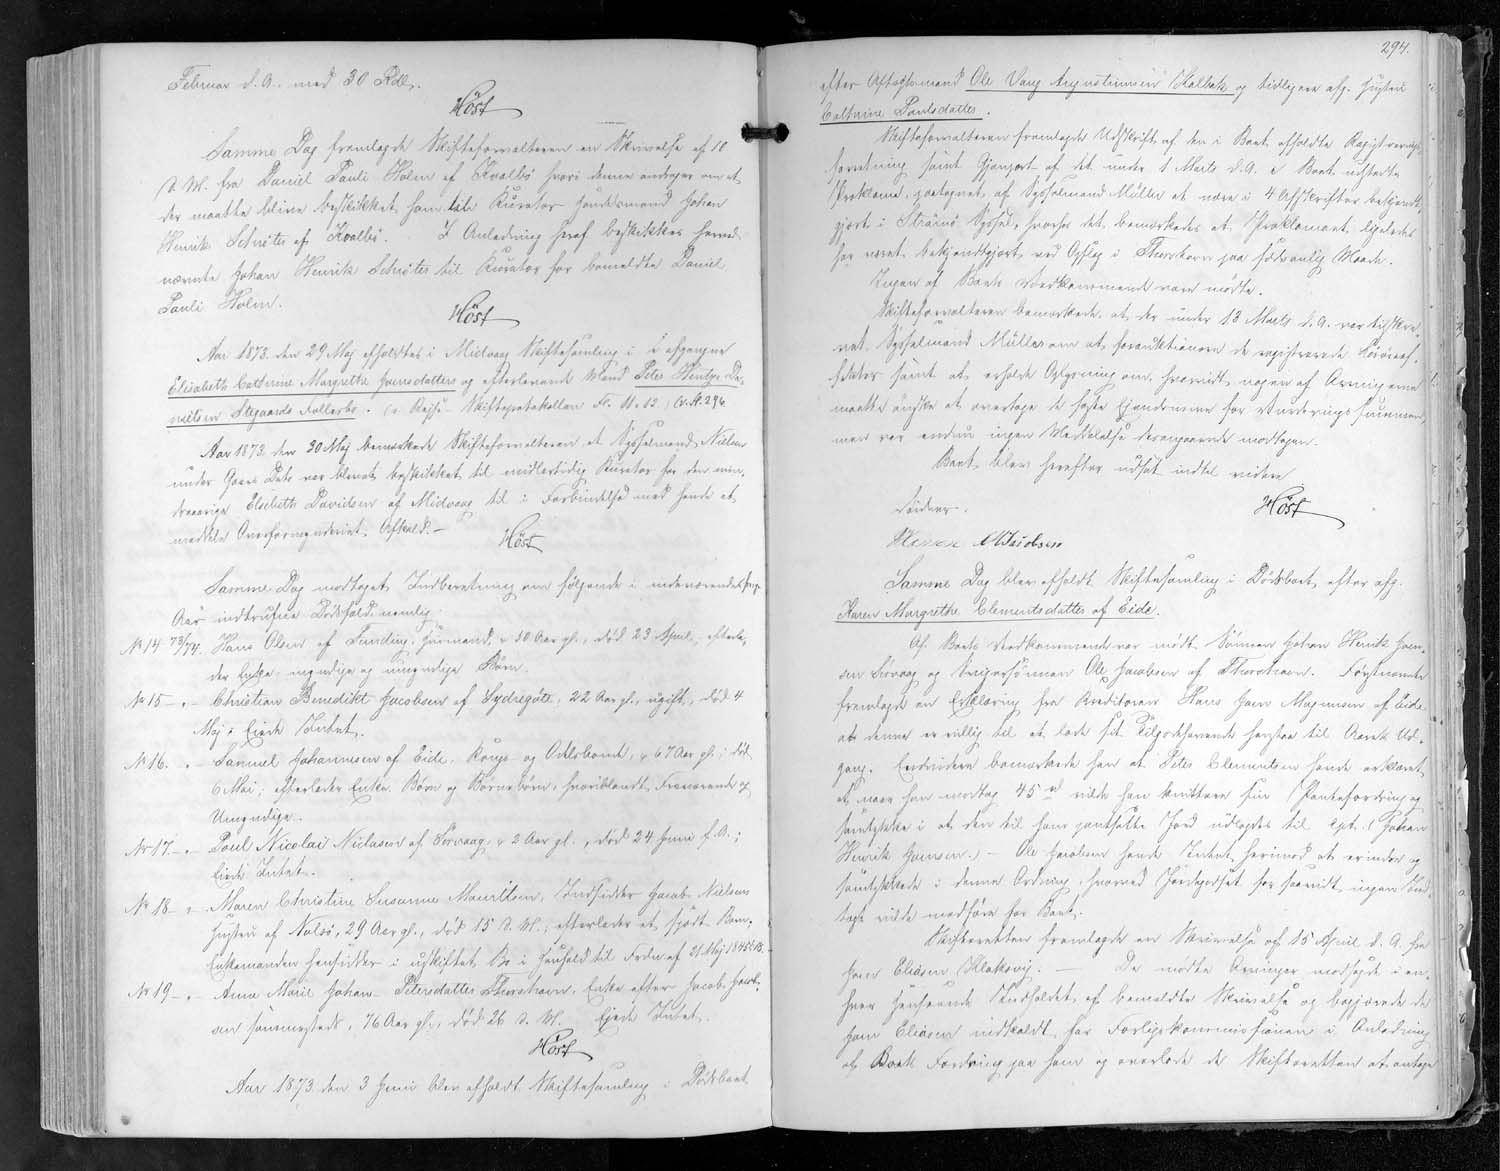 Februar d. A. med 30 Rdl.
Höst
Samme Dag fremlagde Skifteforvalteren en Skrivelse af 10
d. M. fra Daniel Pauli Holm af Kvalbö hvori denne androger om at
der maatte blive beskikket ham til Kurator Handelsmand Johan
Henrik Schröter af Kvalbö. I Anledning heraf beskikkes herved
nævnte Johan Henrik Schröter til Kurator for bemeldte Daniel
Pauli Holm.
Höst
Aar 1873 den 29 Maj afholdtes i Midvaag Skiftesamling i afgangne
Elisabeth Cathrine Margrethe Hansdatters og efterlevende Mand Peter Hentze Da-
nielsen Stegaards Fællesbo. (v. Rejse-Skifteprotokollen Fo. 11 & 12) (v. A. 296
Aar 1873 den 30 Maj bemærkede Skifteforvalteren at Sysselmand Nielsen
under Gaars Dato var blevet beskikket til midlertidig Kurator for den min-
dreaarige Elsebeth Davidsen af Midvaag til i Forbindelse med hende at
meddele Overformynderiet Afkald.-
Höst
Samme Dag modtoges Indberetning om følgende i indeværende
Aar indtrufne Dödsfald nemlig:
No 14 73/74. Hans Olsen af Funding, Huusmand, 50 Aar gl., död 23 April; efterla-
der Enke, myndige og umyndige Börn.
No 15 -"- Christian Benedikt Jacobsen af Sydregöte, 22 Aar gl., ugift, död 4
Maj; Ejede Intet.
No 16. " - Samuel Johannesen af Eide, Konge- og Odelsbonde, 67 Aar gl.; död
6 Mai; efterlader Enke, Börn og Börnebörn, hvoriblandt Fraværende og
Umyndige.
No 17. -"- Poul Nicolai Niclasen af Sörvaag, 2 Aar gl., död 24 Juni f. A.;
Ejede Intet.
No 18 - " Maren Christine Susanne Mouritsen, Indsidder Jacob Nielsens
Hustru af Nolsö, 29 Aar gl., död 15 d. M.; efterlader et spædt Barn.
Enkemanden hensidder i uskiftet Bo i Henhold til Frdn af 21 Maj 1845 § 18.
No 19 -"- Anne Marie Johan- Petersdatter Thorshavn, Enke efter Jacob Jacob-
sen sammesteds, 76 Aar gl., död 26 d. M. Ejede Intet.
Höst
Aar 1873 den 3 Juni blev afholdt Skiftesamling i Dödsboet
294.
efter Aftægtsmand Ole Vang Augustinussen Kalbak og tidligere afg. Hustru
Cathrine Poulsdatter.
Skifteforvalteren fremlagde Udskrift af den i Boet afholdte Registrerings-
forretning samt Gjenpart af det under 1 Marts d. A. i Boet udstedte
Proklama, paategnet af Sysselmand Müller at være i 4 Afskrifter bekjendt-
gjort i Strömö Syssel, hvorhos det bemærkedes at Proklamaet ligeledes
har været bekjendtgjort ved Opslag i Thorshavn paa sædvanlig Maade.
Ingen af Boets Vedkommende vare mödte.
Skifteforvalteren bemærkede at der under 13 Marts d. A. var tilskre-
vet Sysselmand Müller om at foranledige de registrerede Lösöreef-
fekter samt at erholde Oplysning om, hvorvidt nogen af Arvingerne
maatte önske at overtage de faste Ejendomme for Vurderingssummen,
men var endnu ingen Meddelelse desangaaende modtagen.
Boet blev herefter udsat indtil videre
Höst
Vidner.
M Jacobsen
Samme Dag blev afholdt Skiftesamling i Dödsboet efter afg.
Karen Margrethe Clementsdatter af Eide.
Af Boets Vedkommende var mödt Sönnen Johan Henrik Han-
sen Sörvaag og Svigersönnen Ole Jacobsen af Thorshavn. Förstnævnte
fremlagde en Erklæring fra Kreditoren Hans Jacob Magnusen af Eide
at denne er villig til at lade sit Tilgodehavende henstaa til Boets Ud-
gang. Endvidere bemærkede han at Peter Clementsen havde erklæret
at naar han modtog 45 rd vilde han kvittere sin Pantefordring og
samtykke i at den til ham pantsatte Jord udlagdes til Cpt. (Johan
Henrik Hansen.) - Ole Jacobsen havde Intet herimod at erindre og
samtykkede i denne Ordning, hvorved Jordegodset for saavidt ingen Ind-
tægt vilde medföre for Boet.
Skifteretten fremlagde en Skrivelse af 15 April d. A. fra
Hans Eliasen Klaksvig. - De mödte Arvinger modsagde i en-
hver Henseende Indholdet af bemeldte Skrivelse og begjærede de
Hans Eliasen indkaldt for Forligskommissionen i Anledning
af Boets Fordring paa ham og overlode de Skifteretten at antage